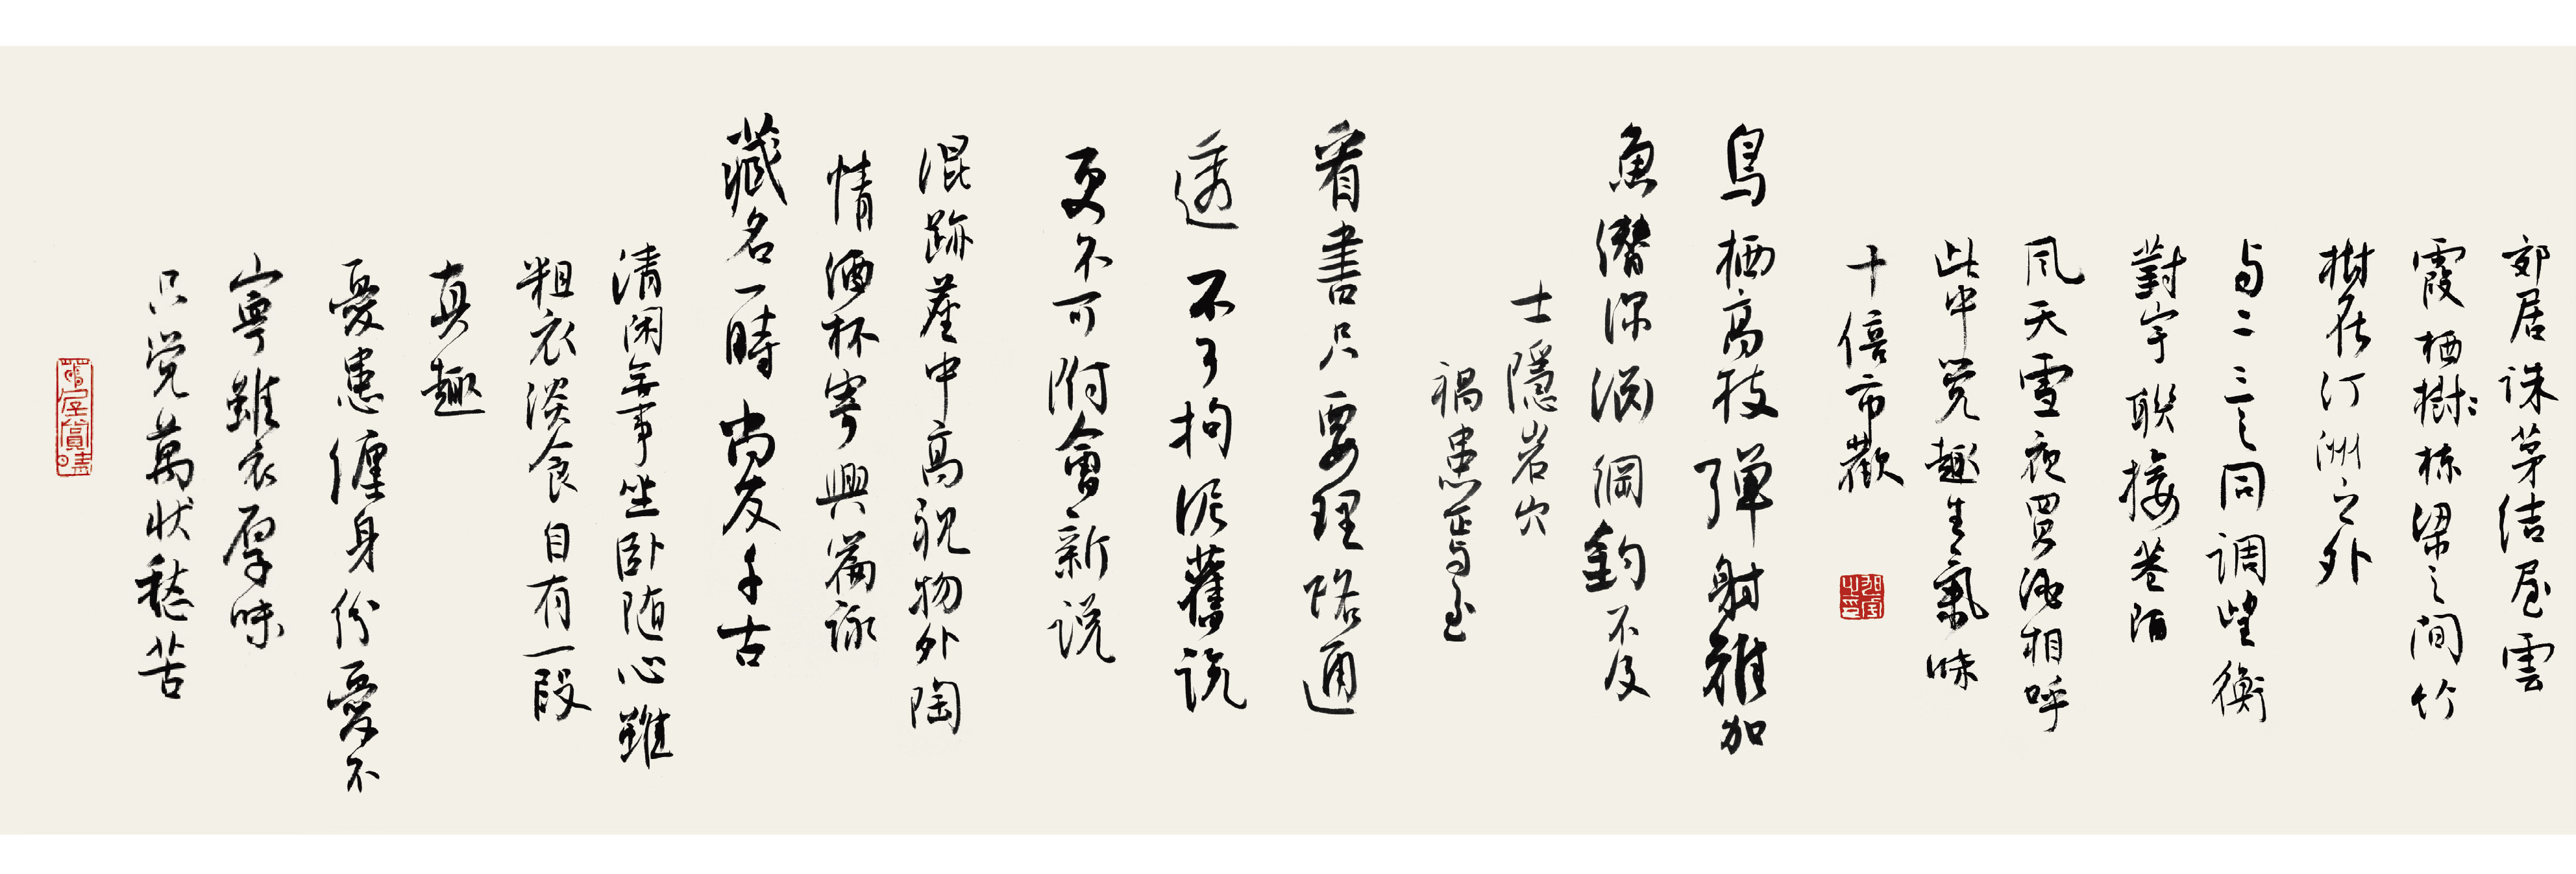 郊居誅茅结屋雲
霞栖樹栋梁之间竹
樹在汀洲之外
与二三之同调望衡
對宇联接巷陌
风天雪夜買酒相呼
此中觉趣生氣味
十倍市歡
鳥栖高枝弹射難加
魚潛深渊網釣不及
士隱岩穴
禍患焉至
看書只要理路通
透不了拘泥舊说
更不可附會新说
混跡塵中高視物外陶
情酒杯寄興篇詠
藏名一時尚友千古
清闲無事坐卧随心雖
粗衣淡食自有一段
真趣
憂患缠身份憂不
寧雖衣厚味
只觉萬状愁苦